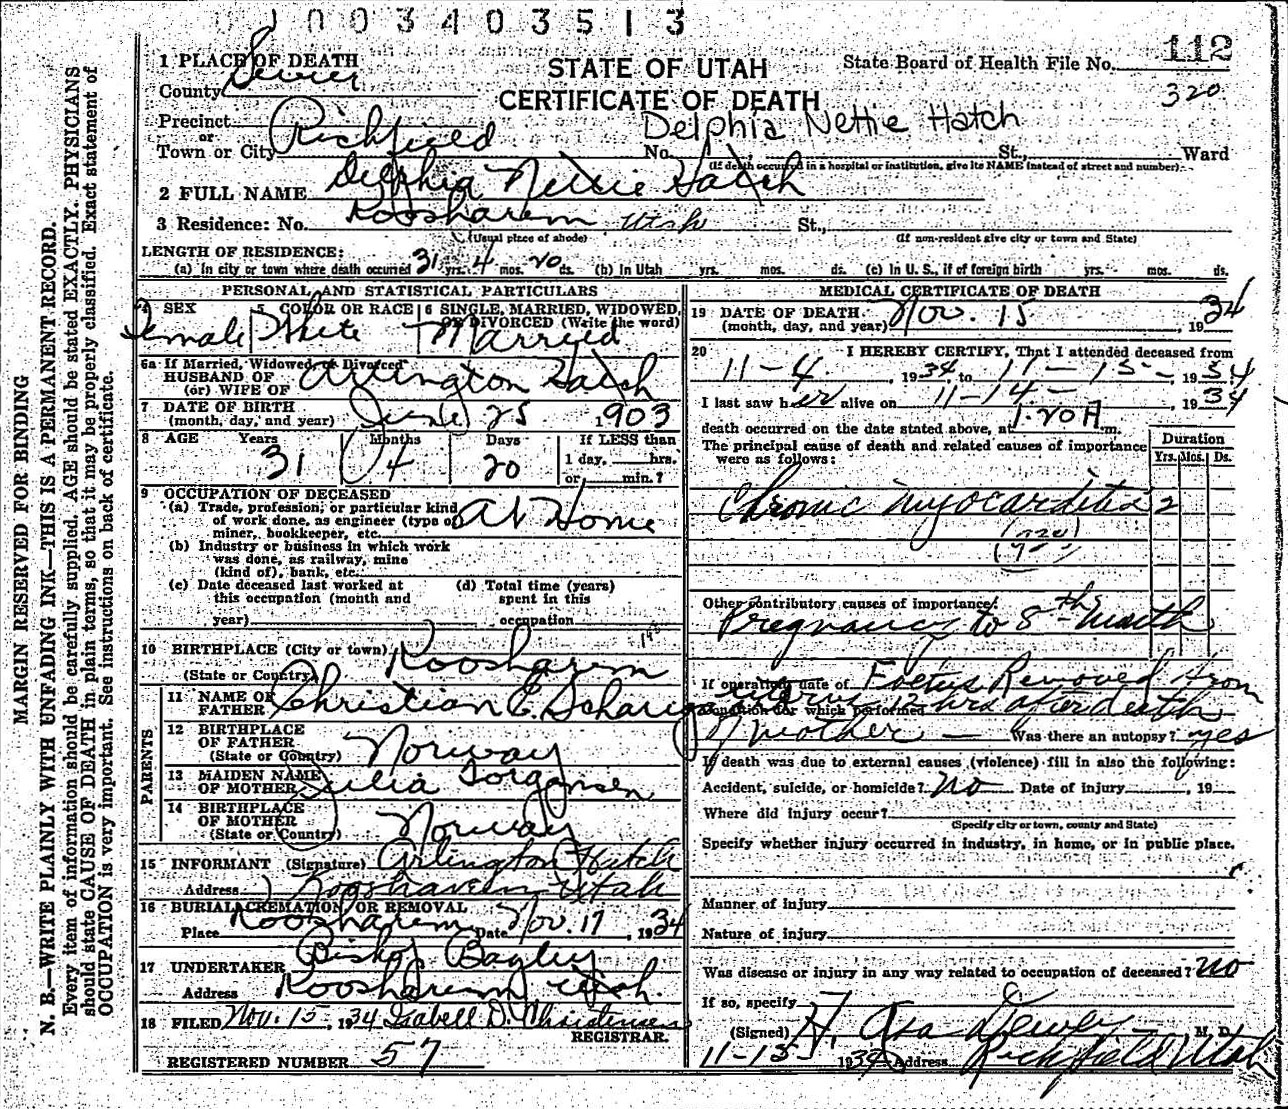 1003403513
112
1 PLACE OF DEATH
STATE OF UTAH
State Board of Health File No.
County Sevier
CERTIFICATE OF DEATH
320
Precinct
or
Town or City Richfield
Delphia Nettie Hatch
No. St., Ward
(If death occurred in a hospital or institution, give its NAME instead of street and number)
2 FULL NAME Delphia Nettie Hatch
3 Residence: No. Koosharem Utah St.,
(Usual place of abode) (If non-resident give city or town and State)
LENGTH OF RESIDENCE:
(a) In city or town where death occurred 31 yrs. 4 mos. 20 ds. (b) In Utah yrs. mos. ds. (c) In U. S., if of foreign birth yrs. mos. ds.
PERSONAL AND STATISTICAL PARTICULARS
SEX 5 COLOR OR RACE 6 SINGLE, MARRIED, WIDOWED,
OR DIVORCED (Write the word)
Female White Married
6a If Married, Widowed, or Divorced
HUSBAND OF
(or) WIFE OF Arlington Hatch
7 DATE OF BIRTH
(month, day, and year) June 25 1903
8 AGE Years Months Days If LESS than
31 4 20 1 day, hrs.
or min.?
9 OCCUPATION OF DECEASED
(a) Trade, profession, or particular kind
of work done, as engineer (type of At Home
miner, bookkeeper, etc.
(b) Industry or business in which work
was done, as railway, mine
(kind of), bank, etc.
(c) Date deceased last worked at (d) Total time (years)
this occupation (month and spent in this
year) occupation
10 BIRTHPLACE (City or town) Koosharem
(State or Country)
PARENTS
11 NAME OF
FATHER Christian E.
12 BIRTHPLACE
OF FATHER Norway
(State or Country)
13 MAIDEN NAME
OF MOTHER Julia Sorgansen
14 BIRTHPLACE
OF MOTHER Norway
(State or Country)
15 INFORMANT (Signature) Arlington Hatch
Address Koosharem Utah
16 BURIAL, CREMATION OR REMOVAL
Place Koosharem Date Nov. 17, 1934
17 UNDERTAKER Bishop Bagley
Address Koosharem Utah.
18 FILED Nov. 15, 1934 Isabell D. Christensen
REGISTRAR.
REGISTERED NUMBER 57
MEDICAL CERTIFICATE OF DEATH
19 DATE OF DEATH
(month, day, and year) Nov. 15, 1934
20 I HEREBY CERTIFY, That I attended deceased from
11-4, 1934, to 11-15-, 1934
I last saw her alive on 11-14-, 1934
death occurred on the date stated above, at 1.20 A m.
The principal cause of death and related causes of importance
were as follows:
Duration
Yrs. Mos. Ds.
Chronic myocarditis 2
Other contributory causes of importance:
Pregnancy to 8th month
If operation, date of Foetus Removed from
condition for which performed hrs after death
of mother — Was there an autopsy? yes
If death was due to external causes (violence) fill in also the following:
Accident, suicide, or homicide? No Date of injury , 19
Where did injury occur?
(Specify city or town, county and State)
Specify whether injury occurred in industry, in home, or in public place.
Manner of injury
Nature of injury
Was disease or injury in any way related to occupation of deceased? No
If so, specify
(Signed) H. Asa Dewey M. D.
11-15 1934 Address Richfield Utah
MARGIN RESERVED FOR BINDING
N. B.—WRITE PLAINLY WITH UNFADING INK—THIS IS A PERMANENT RECORD.
Every item of information should be carefully supplied. AGE should be stated EXACTLY. PHYSICIANS
should state CAUSE OF DEATH in plain terms, so that it may be properly classified. Exact statement of
OCCUPATION is very important. See instructions on back of certificate.